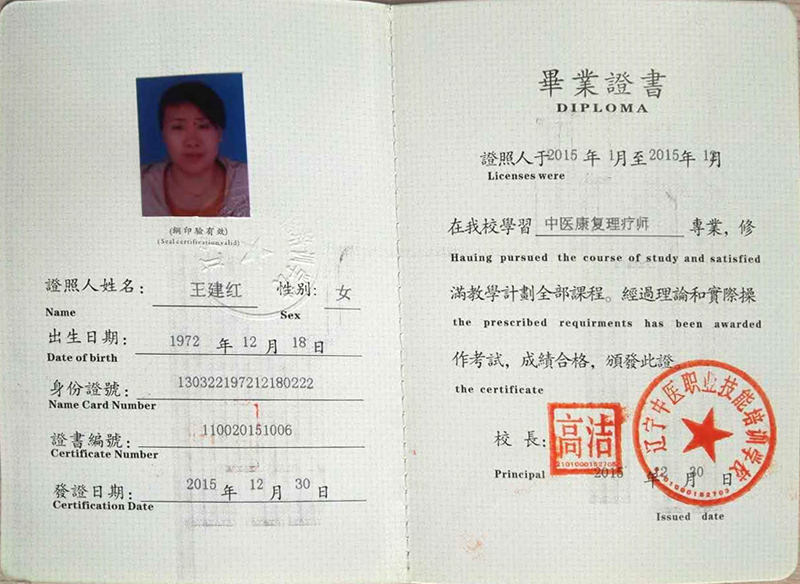 (鋼印驗有效)
(Seal certification valid)
證照人姓名: 王建红 性别: 女
Name Sex
出生日期: 1972 年 12 月 18 日
Date of birth
身份證號: 130322197212180222
Name Card Number
證書編號: 110020151006
Certificate Number
發證日期: 2015 年 12 月 30 日
Certification Date
畢業證書
DIPLOMA
證照人于2015 年 1月至2015年 12月
Licenses were
在我校學習 中医康复理疗师 專業，修
Hauing pursued the course of study and satisfied
滿教學計劃全部課程。經過理論和實際操
the prescribed requirments has been awarded
作考試，成績合格，頒發此證。
the certificate
辽宁中医职业技能培训学校
校長: 高洁
2101000152705
Principal 2015 年 12 月 30 日
Issued date